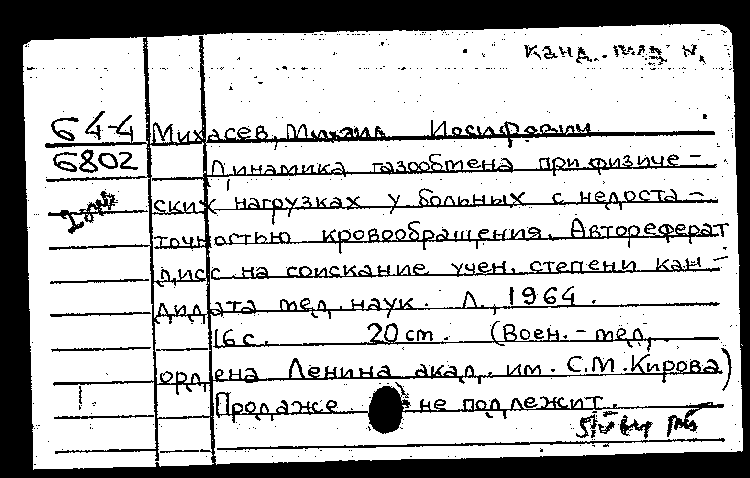 канд. мед н.
64-4 Михасев, Михаил Иосифович
6802 Динамика газообмена при физиче-
ских нагрузках у больных с недоста-
точностью кровообращения. Автореферат
дисс на соискание учен. степени кан-
дидата мед. наук. Л., 1964.
16 с. 20 cm. (Воен.-мед.
орд ена Ленина акад. им. С.М.Кирова)
Продаже не подлежит.